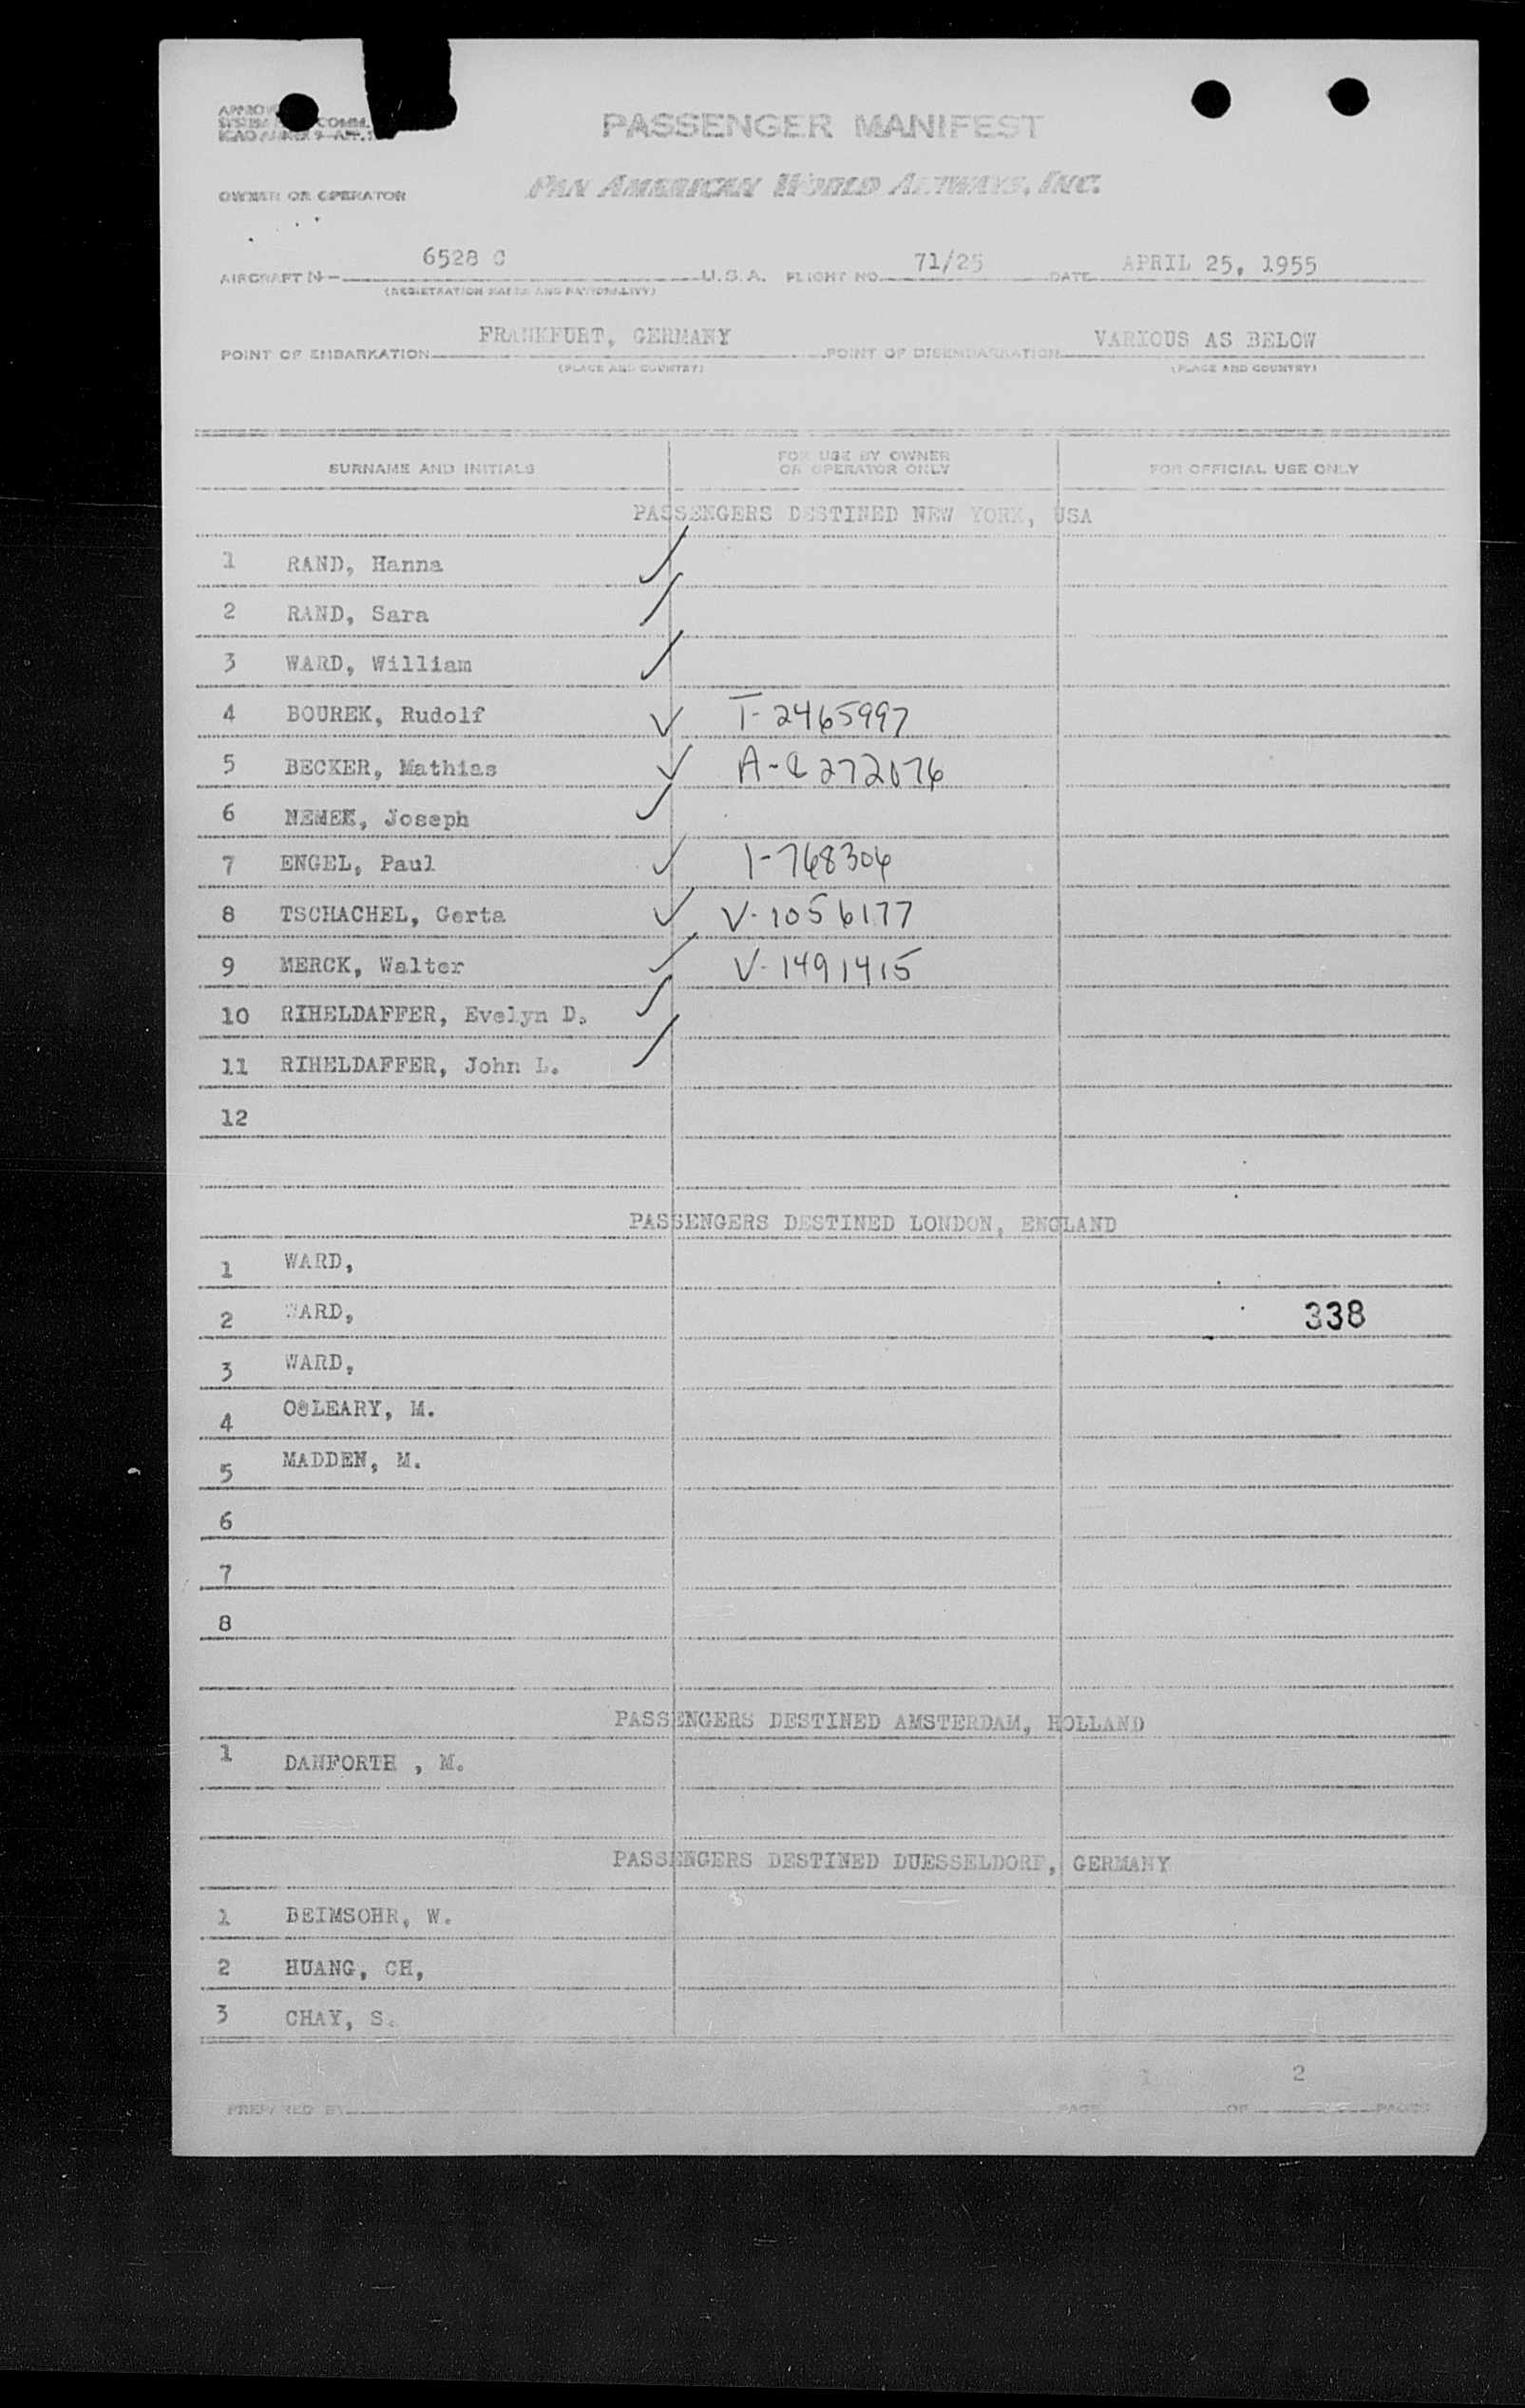 PASSENGER MANIFEST
OWNER OR OPERATOR PAN AMERICAN WORLD AIRWAYS, INC.
AIRCRAFT N- 6528 C U.S.A. FLIGHT NO. 71/25 DATE APRIL 25, 1955
(REGISTRATION MARKS AND NATIONALITY)
POINT OF EMBARKATION FRANKFURT, GERMANY POINT OF DISEMBARKATION VARIOUS AS BELOW
(PLACE AND COUNTRY) (PLACE AND COUNTRY)
SURNAME AND INITIALS FOR USE BY OWNER OR OPERATOR ONLY FOR OFFICIAL USE ONLY
PASSENGERS DESTINED NEW YORK, USA
1 RAND, Hanna
2 RAND, Sara
3 WARD, William
4 BOUREK, Rudolf T-2465997
5 BECKER, Mathias
6 Joseph
7 ENGEL, Paul
8 TSCHACHEL, Gerta V-1056177
9 MERCK, Walter V-1491415
10 RIHELDAFFER, Evelyn D.
11 RIHELDAFFER, John L.
12
PASSENGERS DESTINED LONDON, ENGLAND
1 WARD,
2 WARD,
338
3 WARD,
4 O8LEARY, M.
5 MADDEN, M.
6
7
8
PASSENGERS DESTINED AMSTERDAM, HOLLAND
1 DANFORTH , M.
PASSENGERS DESTINED DUESSELDORF, GERMANY
1 BEIMSOHR, W.
2 HUANG, CH,
3 CHAY, S.
1 2
PREPARED BY PAGE OF PAGES